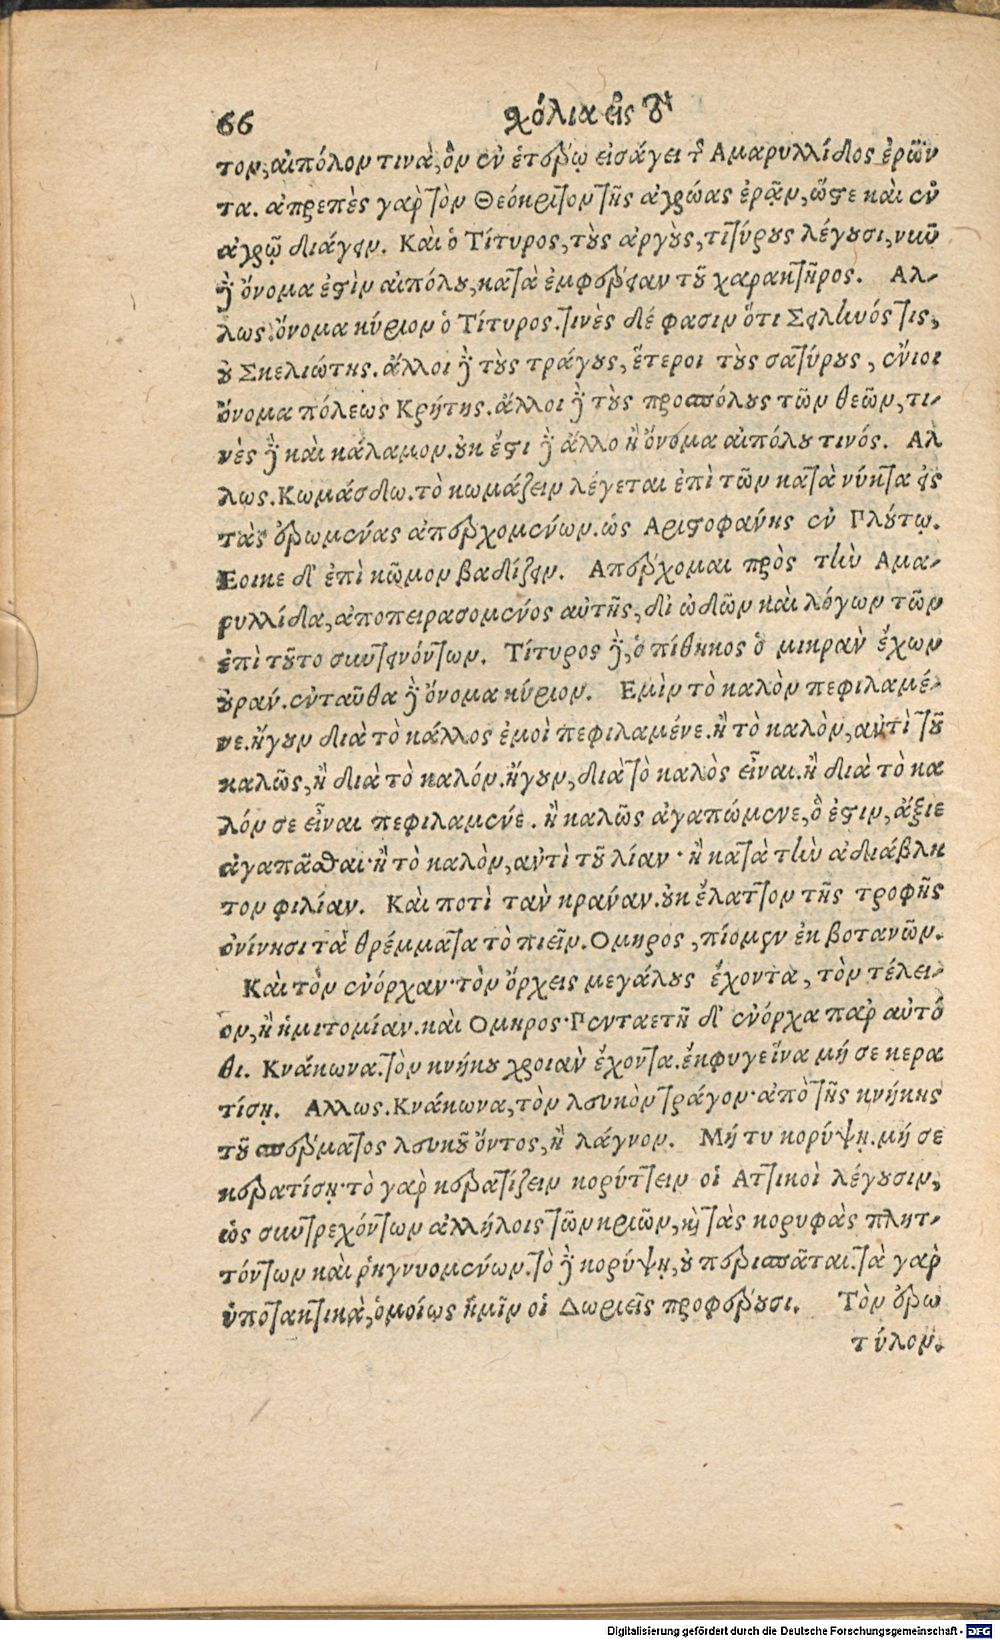 66 χόλια εἰς τὸ
τον, αἰπόλον τινὰ, ὃν ἐν ἑτέρῳ εἰσάγει τῆς Αμαρυλλίδος ἐρῶν
τα. ἀπρεπὲς γὰρ τὸν Θεόκριτον τῆς ἀγρώας ἐρᾷν, ὥστε καὶ ἐν
ἀγρῷ διάγειν. Καὶ ὁ Τίτυρος, τοὺς ἀργοὺς, τιτύρους λέγουσι, νῦν
δὲ ὄνομα ἐστὶν αἰπόλου, κατὰ ἐμφέρειαν τοῦ χαρακτῆρος. Αλ-
λως. ὄνομα κύριον ὁ Τίτυρος. τινὲς δέ φασιν ὅτι Σειληνός τις,
οὐ Σικελιώτης. ἄλλοι δὲ τοὺς τράγους, ἕτεροι τοὺς σατύρους, ἔνιοι
ὄνομα πόλεως Κρήτης. ἄλλοι δὲ τοὺς προσπόλους τῶν θεῶν, τι-
νὲς δὲ καὶ κάλαμον. οὐκ ἔστι δὲ ἄλλο ἢ ὄνομα αἰπόλου τινός. Αλ
λως. Κωμάσδω. τὸ κωμάζειν λέγεται ἐπὶ τῶν κατὰ νύκτα εἰς
τὰς ἐρωμένας ἀπερχομένων. ὡς Αριστοφάνης ἐν Πλούτῳ.
Εοικε δ' ἐπὶ κῶμον βαδίζειν. Απέρχομαι πρὸς τὴν Αμα-
ρυλλίδα, ἀποπειρασομένος αὐτῆς, δι' ὠδῶν καὶ λόγων τῶν
ἐπὶ τοῦτο συντεινόντων. Τίτυρος δὲ, ὁ πίθηκος ὁ μικρὰν ἔχων
οὐράν. ἐνταῦθα δὲ ὄνομα κύριον. Εμὶν τὸ καλὸν πεφιλαμέ-
νε. ἤγουν διὰ τὸ κάλλος ἐμοὶ πεφιλαμένε. ἢ τὸ καλὸν, ἀντὶ τοῦ
καλῶς, ἢ διὰ τὸ καλόν. ἤγουν, διὰ τὸ καλὸς εἶναι. ἢ διὰ τὸ κα
λόν σε εἶναι πεφιλαμένε. ἢ καλῶς ἀγαπώμενε, ὅ ἐστιν, ἄξιε
ἀγαπᾶσθαι· ἢ τὸ καλὸν, ἀντὶ τοῦ λίαν· ἢ κατὰ τὴν ἀδιάβλη
τον φιλίαν. Καὶ ποτὶ τὰν κράναν. οὐκ ἔλαττον τῆς τροφῆς
ὀνίνησι τὰ θρέμματα τὸ πιεῖν. Ομηρος, πίομεν ἐκ βοτανῶν.
Καὶ τὸν ἐνόρχαν· τὸν ὄρχεις μεγάλους ἔχοντα, τὸν τέλει-
ον, ἢ ἡμιτομίαν. καὶ Ομηρος· Πενταετῆ δ' ἐνόρχα παρ' αὐτό
θι. Κνάκωνα. τὸν κνήκου χροιὰν ἔχοντα. ἐκφυγεῖνα μή σε κερα
τίσῃ. Αλλως. Κνάκωνα, τὸν λευκὸν τράγον· ἀπὸ τῆς κνήκης
τοῦ σπέρματος λευκοῦ ὄντος, ἢ λάγνον. Μή τυ κορύψῃ. μή σε
κερατίσῃ· τὸ γὰρ κερατίζειν κορύττειν οἱ Ατικοὶ λέγουσιν,
ὡς συντρεχόντων ἀλλήλοις τῶν κριῶν, καὶ τὰς κορυφὰς πλητ-
τόντων καὶ ῥηγνυομένων. τὸ δὲ κορύψῃ, οὐ περισπᾶται. τὰ γὰρ
ὑποτακτικὰ, ὁμοίως ἡμῖν οἱ Δωριεῖς προφέρουσι. Τὸν ἐρω
τύλον.
Digitalisierung gefördert durch die Deutsche Forschungsgemeinschaft - DFG